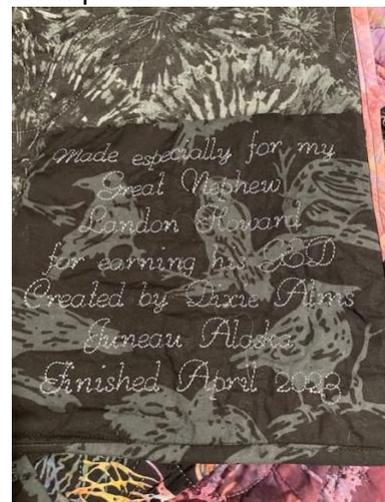 Made especially for my
Great Nephew
Landon Howard
for earning his
Created by Dixie Alms
Juneau Alaska
Finished April 2023